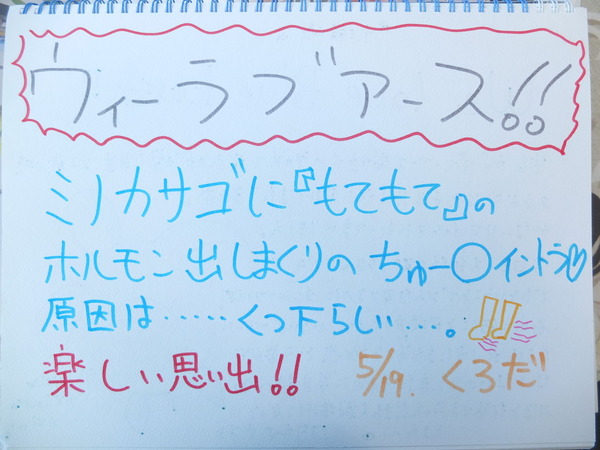 ウィーラブアース!!
ミノカサゴに『もてもて』の
ホルモン出しまくりのちゅー○イントラ♡
原因は……くつ下らしい…。
楽しい思い出!! 5/19. くろだ